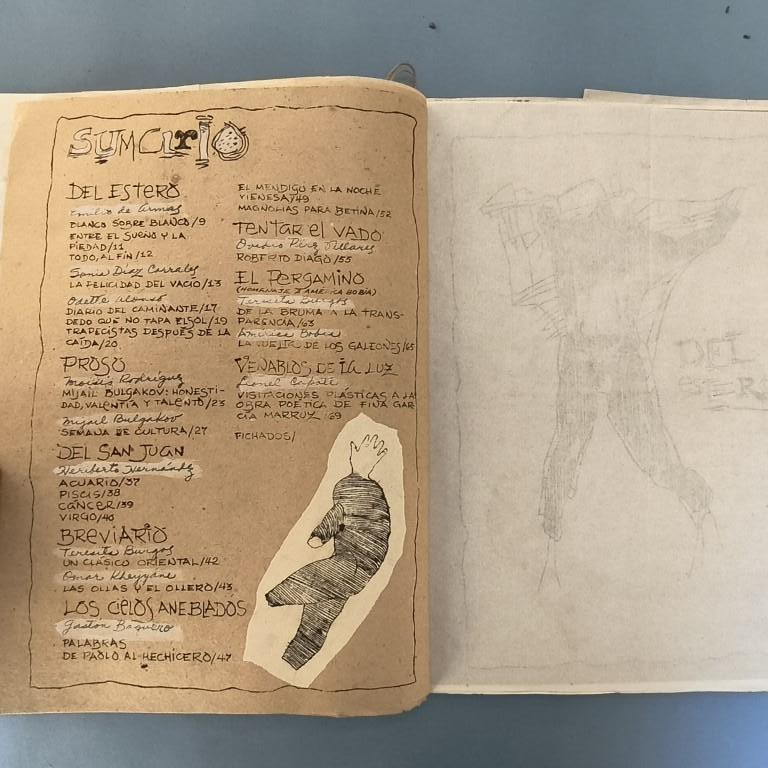 SUMario
DEL ESTERO
Emilio de Armas
BLANCO SOBRE BLANCO/9
ENTRE EL SUEÑO Y LA
PIEDAD/11
TODO, AL FIN/12
Sonia Díaz Corrales
LA FELICIDAD DEL VACIO/13
Odette Alonso
DIARIO DEL CAMINANTE/17
DEDO QUE NO TAPA EL SOL/19
TRAPECISTAS DESPUÉS DE LA
CAÍDA/20
PROSO
Moisés Rodríguez
MIJAIL BULGAKOV: HONESTI-
DAD, VALENTÍA Y TALENTO/23
Mijail Bulgakov
SEMANA DE CULTURA/27
DEL SAN JUAN
Heriberto Hernández
ACUARIO/37
PISCIS/38
CÁNCER/39
VIRGO/40
BREVIARIO
Teresita Burgos
UN CLÁSICO ORIENTAL/42
Omar Kheyyáne
LAS OLLAS Y EL OLLERO/43
LOS CIELOS ANEBLADOS
Gaston Baquero
PALABRAS
DE PAOLO AL HECHICERO/47
EL MENDIGO EN LA NOCHE
VIENESA/49
MAGNOLIAS PARA BETINA/52
TENTAR el VADO
Ovidio Pérez Pillares
ROBERTO DIAGO/55
EL PERGAMINO
(HOMENAJE A AMÉRICA BOBIA)
Teresita Burgos
DE LA BRUMA A LA TRANS-
PARENCIA/63
América Bobia
LA VUELTA DE LOS GALEONES/65
VENABLOS DE LA LUZ
Lionel Capote
VISITACIONES PLÁSTICAS A LA
OBRA POÉTICA DE FINA GAR
CÍA MARRUZ/69
FICHADOS/
DEL